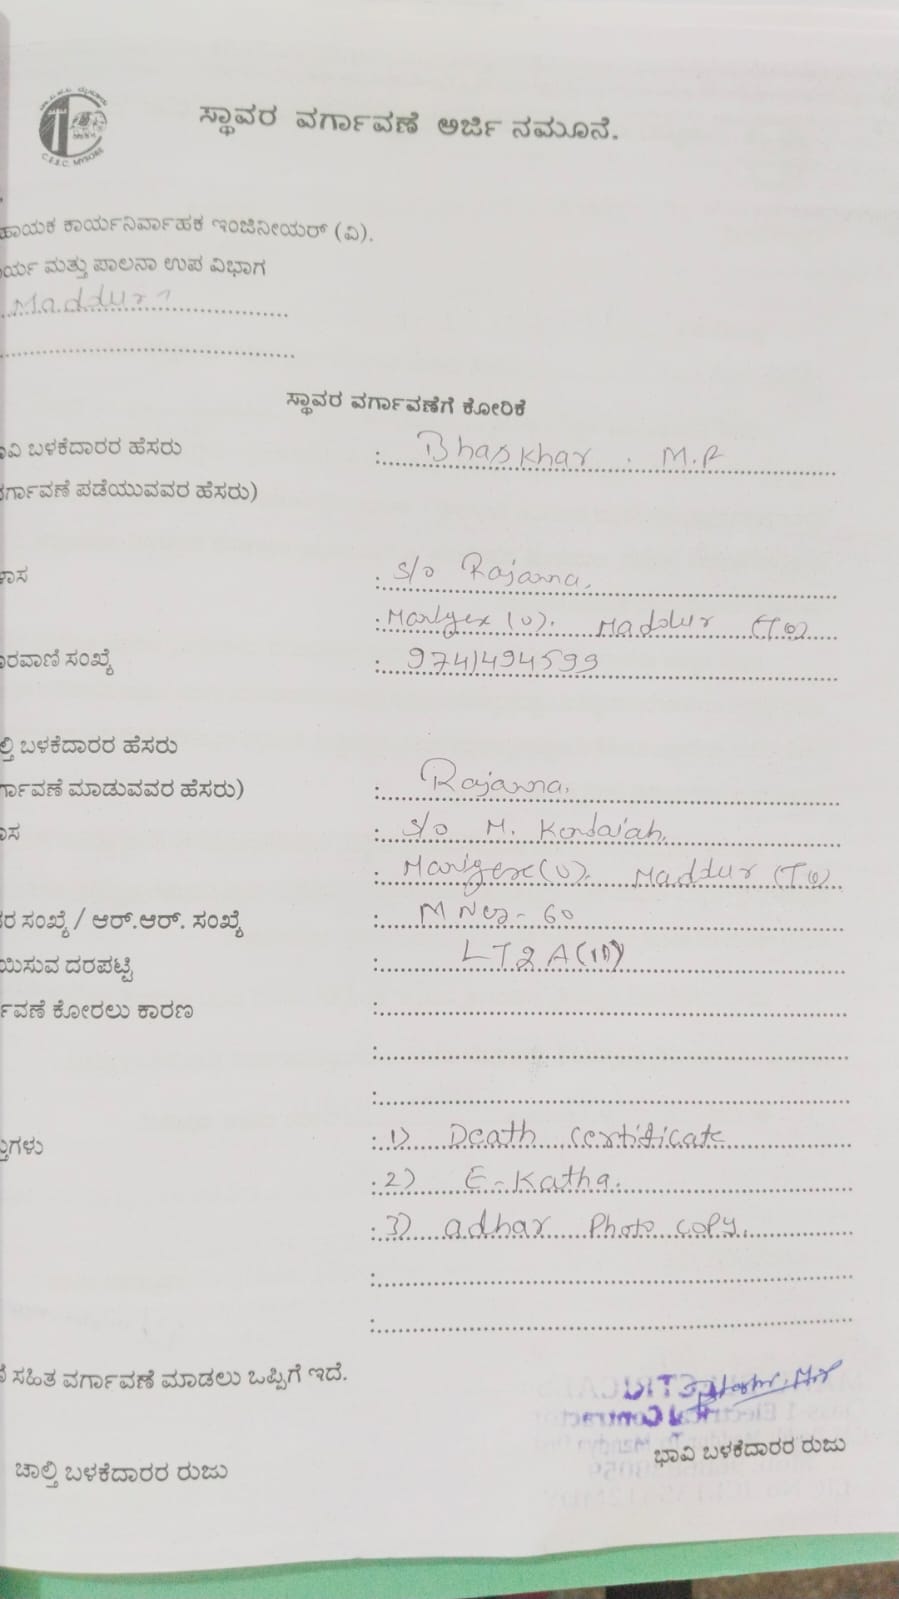 C.E.S.C. MYSORE
ಸ್ಥಾವರ ವರ್ಗಾವಣೆ ಅರ್ಜಿ ನಮೂನೆ.
ಹಾಯಕ ಕಾರ್ಯನಿರ್ವಾಹಕ ಇಂಜಿನೀಯರ್ (ವಿ).
ರ್ಯ ಮತ್ತು ಪಾಲನಾ ಉಪ ವಿಭಾಗ
Maddur
ಸ್ಥಾವರ ವರ್ಗಾವಣೆಗೆ ಕೋರಿಕೆ
ವಿ ಬಳಕೆದಾರರ ಹೆಸರು : Bhaskhar . M.R
ರ್ಗಾವಣೆ ಪಡೆಯುವವರ ಹೆಸರು)
ಾಸ : S/o Rajanna,
: (V). Maddur (TQ)
ೂರವಾಣಿ ಸಂಖ್ಯೆ : 9741494599
ಲ್ತಿ ಬಳಕೆದಾರರ ಹೆಸರು
ರ್ಗಾವಣೆ ಮಾಡುವವರ ಹೆಸರು) : Rajanna,
ಾಸ : S/o M. Kendaiah,
: Marigere (V). Maddur (TQ)
ರ ಸಂಖ್ಯೆ / ಆರ್.ಆರ್. ಸಂಖ್ಯೆ : - 60
ಯಿಸುವ ದರಪಟ್ಟಿ : LT2A(ii)
ರ್ಗಾವಣೆ ಕೋರಲು ಕಾರಣ :
:
:
ತುಗಳು : 1) Death certificate
: 2) E-Katha.
: 3) adhar Photo copy.
:
:
ಸಹಿತ ವರ್ಗಾವಣೆ ಮಾಡಲು ಒಪ್ಪಿಗೆ ಇದೆ.
ಚಾಲ್ತಿ ಬಳಕೆದಾರರ ರುಜು
ಭಾವಿ ಬಳಕೆದಾರರ ರುಜು